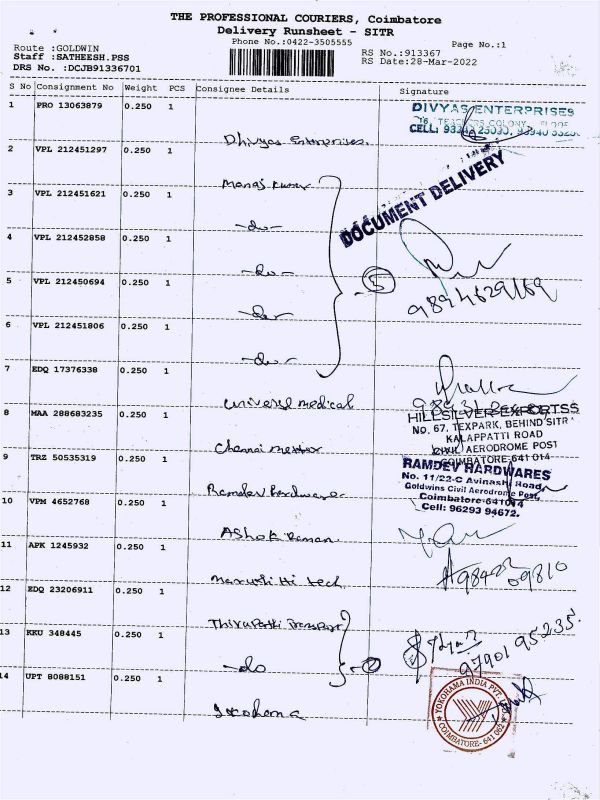 THE PROFESSIONAL COURIERS, Coimbatore
Delivery Runsheet - SITR
Phone No.:0422-3505555
Page No.:1
Route :GOLDWIN
Staff :SATHEESH.PSS
DRS No. :DCJB91336701
RS No.:913367
RS Date:28-Mar-2022
S No Consignment No Weight PCS Consignee Details Signature
1 PRO 13063879 0.250 1
Dhivyas Enterprises.
DIVYAS ENTERPRISES
CELL:
2 VPL 212451297 0.250 1
Manoj Kumar
DOCUMENT DELIVERY
3 VPL 212451621 0.250 1
-do-
4 VPL 212452858 0.250 1
-do-
5 VPL 212450694 0.250 1
-do-
5
9894629169
6 VPL 212451806 0.250 1
-do-
7 EDQ 17376338 0.250 1
Universel medical
8 MAA 288683235 0.250 1
Chennai mettor
HILLSILVER EXPORTSS
NO. 67, TEXPARK, BEHIND SITRA
KALAPPATTI ROAD
CIVIL AERODROME POST
COIMBATORE-641 014
9 TRZ 50535319 0.250 1
Ramdev hardware
RAMDEV HARDWARES
No. 11/22-C Avinashi Road,
Goldwins Civil Aerodrome Post,
Coimbatore-641014
Cell: 96293 94672.
10 VPM 4652768 0.250 1
Ashok Raman
11 APK 1245932 0.250 1
Maruthi Hi tech
98422 09810
12 EDQ 23206911 0.250 1
Thirupathi Transport
13 KKU 348445 0.250 1
-do
2
97901 95235.
14 UPT 8088151 0.250 1
Yocohama
YOKOHAMA INDIA PVT.
COIMBATORE- 641 062